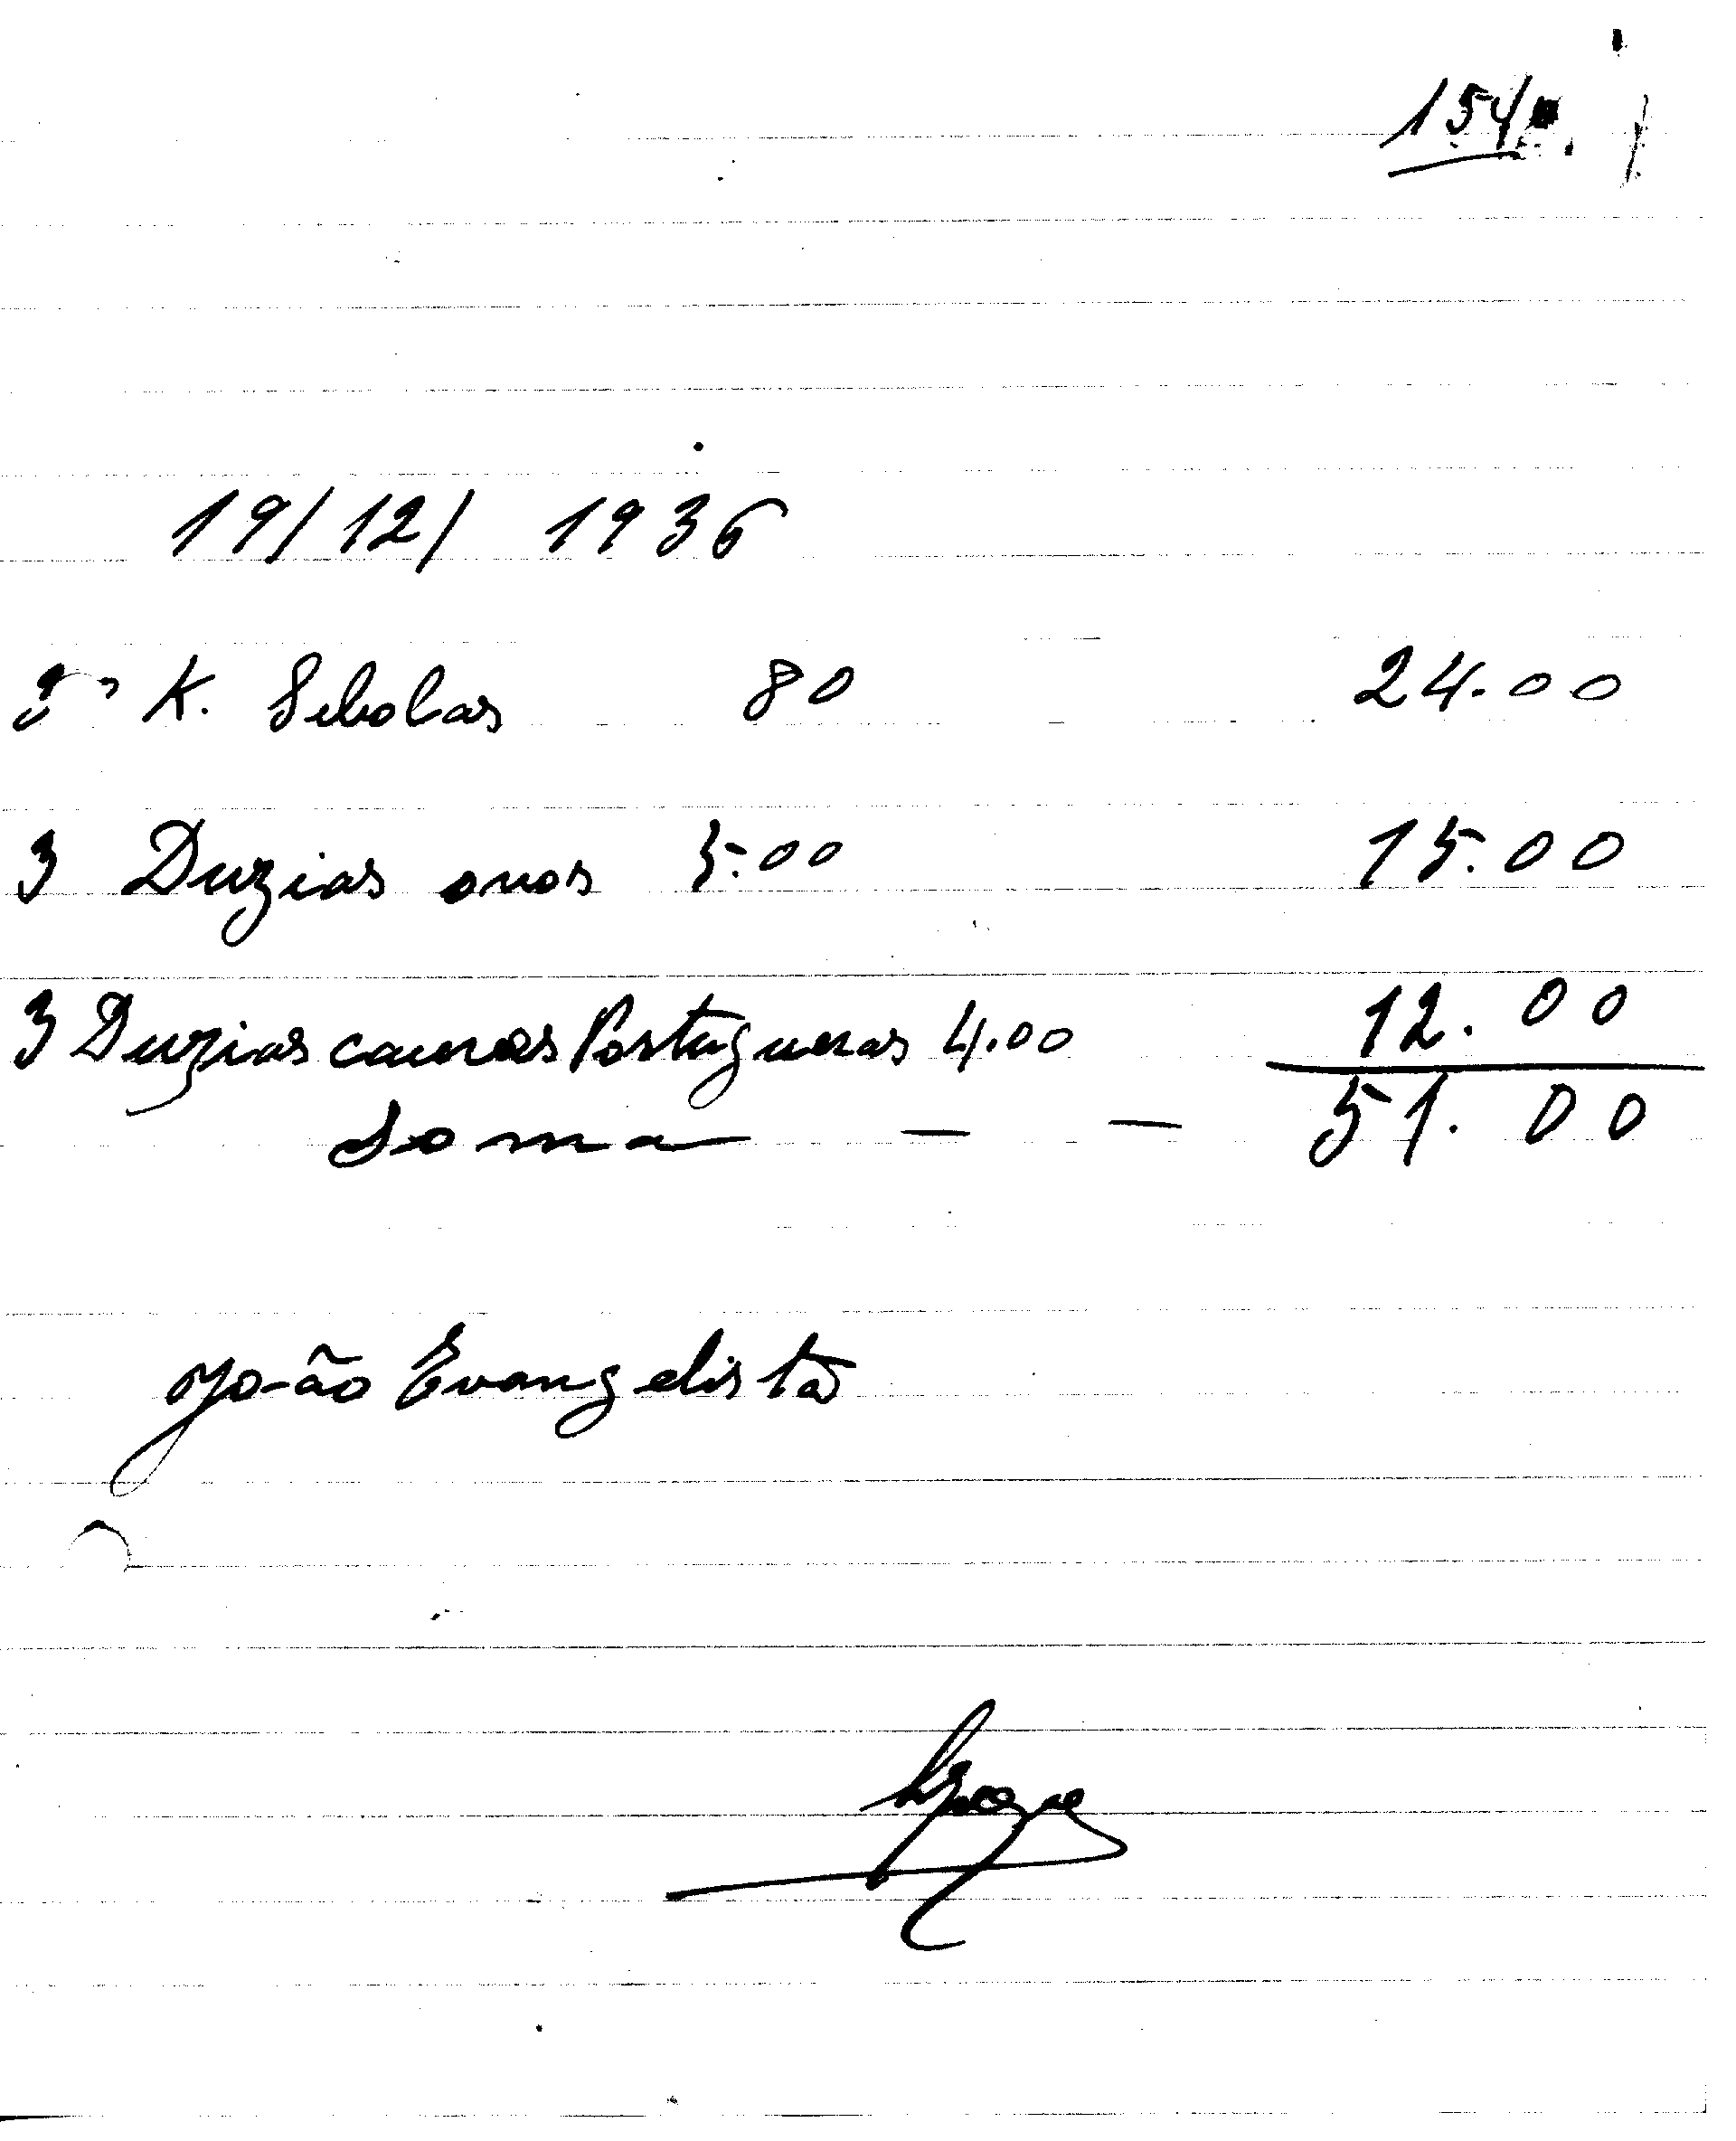 154
19/12/ 1936
K. Sebolas 80 24.00
3 Duzias ovos 5.00 15.00
3 Duzias couves Portuguesas 4.00 12.00
Soma — — 51.00
João Evangelista